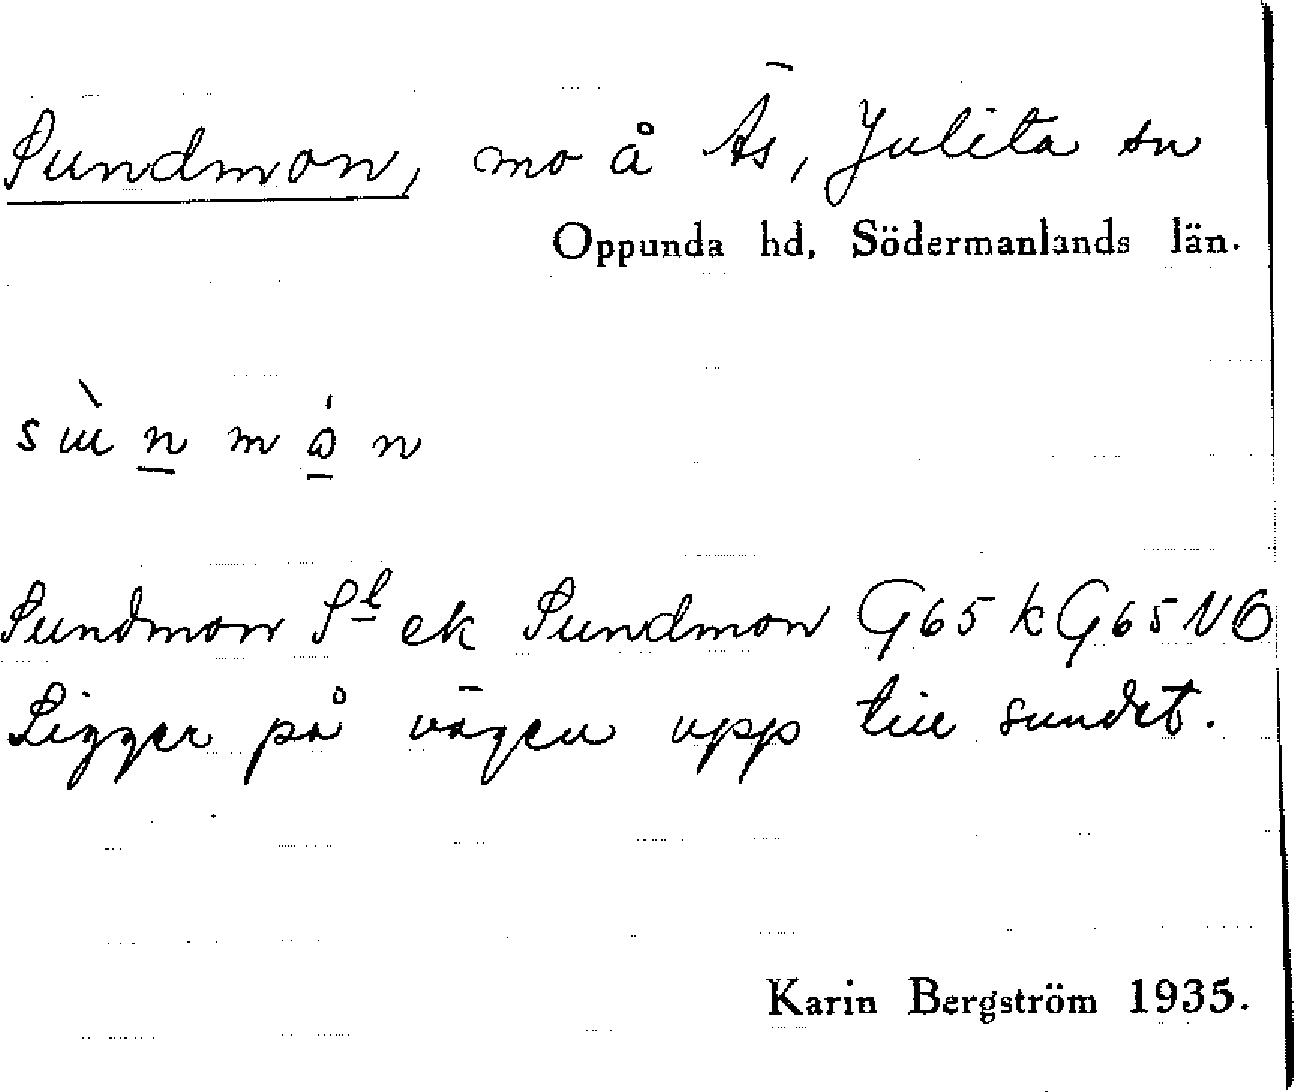 Sundmon, mo å Äs, Julita sn
Oppunda hd, Södermanlands län.
Sundmon Sl ek Sundmon G65 k G65 NO
Ligger på vägen upp till sundet.
Karin Bergström 1935.